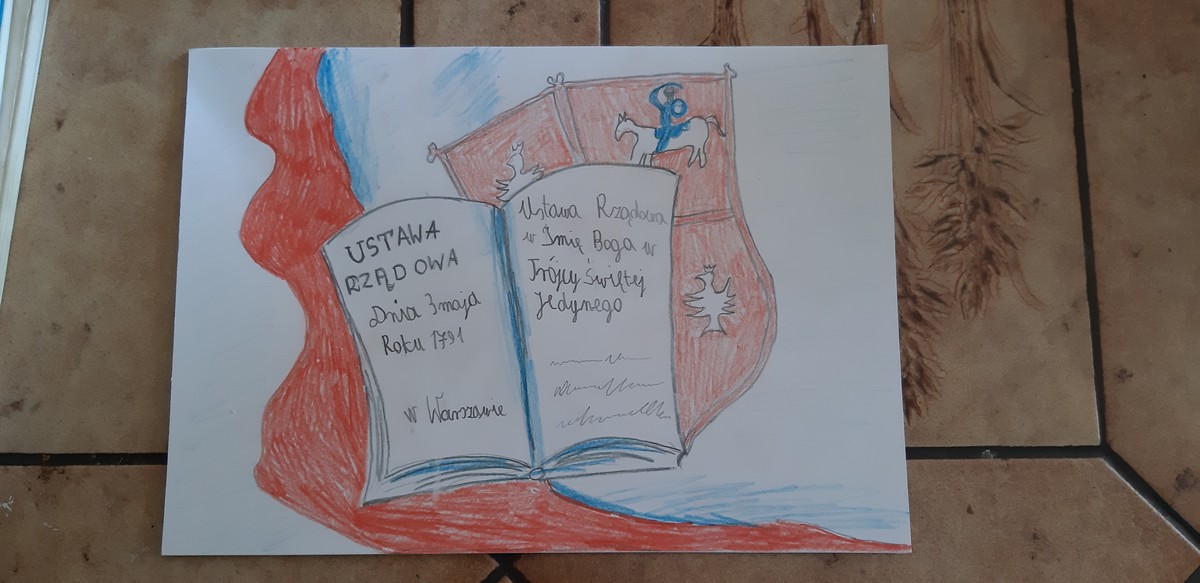 USTAWA
RZĄDOWA
Dnia 3 maja
Roku 1791
w Warszawie
Ustawa Rządowa
w Imię Boga w
Trójcy świętej
Jedynego